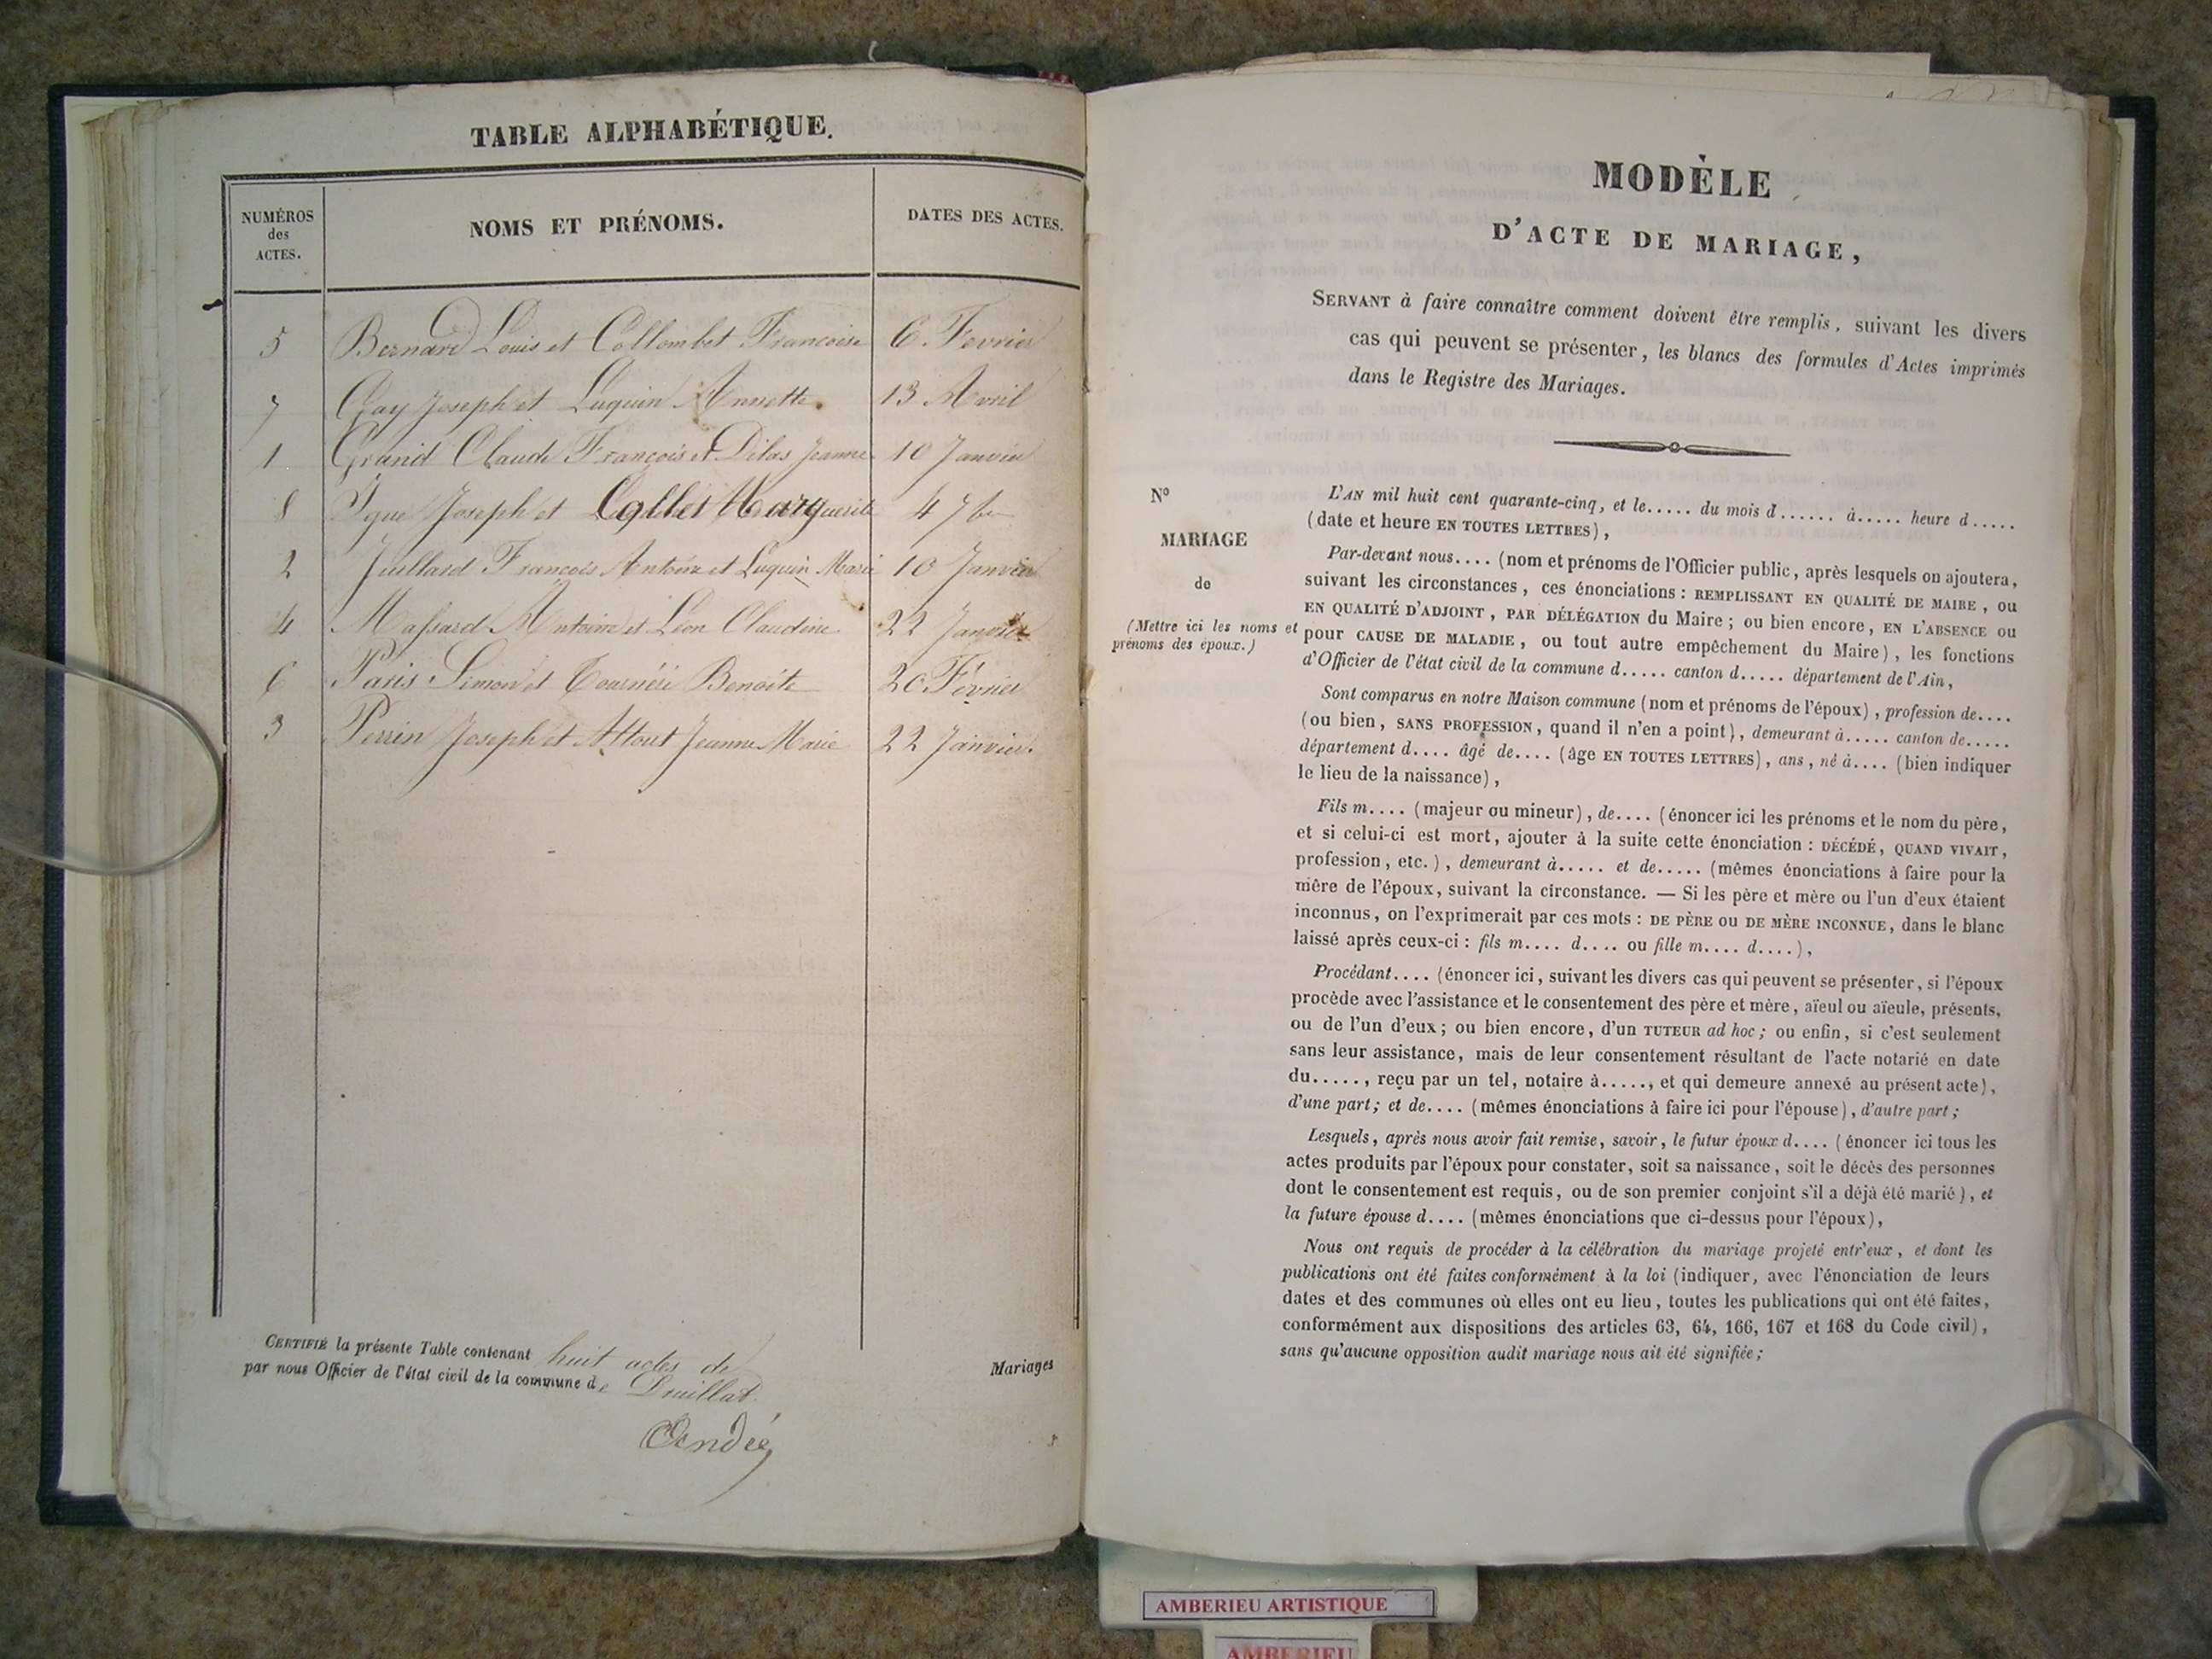 TABLE ALPHABÉTIQUE.
NUMÉROS
des
ACTES.
NOMS ET PRÉNOMS.
DATES DES ACTES.
5 Bernard Louis et Collombet Francoise 6. Fevrier
7 Gay Joseph et Luquin Annette. 13 Avril
1 Grand Claude François et Dilas Jeanne 10 Janvier
8 Joseph et Marguerite 4 7bre
2 Juillard François Antoine et Luquin Marie 10 Janvier
4 Massard Antoine et Léon Claudine 22 Janvier
6 Paris Simon et Benoite 20 Février
3 Perrin Joseph et Attout Jeanne Marie 22 Janvier.
CERTIFIÉ la présente Table contenant huit actes de Mariages
par nous Officier de l'état civil de la commune de Druillat.
MODÈLE
D'ACTE DE MARIAGE,
SERVANT à faire connaître comment doivent être remplis, suivant les divers
cas qui peuvent se présenter, les blancs des formules d'Actes imprimés
dans le Registre des Mariages.
N°
MARIAGE
de
(Mettre ici les noms et
prénoms des époux.)
L'AN mil huit cent quarante-cinq, et le..... du mois d...... à..... heure d.....
(date et heure EN TOUTES LETTRES),
Par-devant nous.... (nom et prénoms de l'Officier public, après lesquels on ajoutera,
suivant les circonstances, ces énonciations : REMPLISSANT EN QUALITÉ DE MAIRE, ou
EN QUALITÉ D'ADJOINT, PAR DÉLÉGATION du Maire; ou bien encore, EN L'ABSENCE ou
pour CAUSE DE MALADIE, ou tout autre empêchement du Maire), les fonctions
d'Officier de l'état civil de la commune d..... canton d..... département de l'Ain,
Sont comparus en notre Maison commune (nom et prénoms de l'époux), profession de....
(ou bien, SANS PROFESSION, quand il n'en a point), demeurant à..... canton de.....
département d.... âgé de.... (âge EN TOUTES LETTRES), ans, né à.... (bien indiquer
le lieu de la naissance),
Fils m.... (majeur ou mineur), de.... (énoncer ici les prénoms et le nom du père,
et si celui-ci est mort, ajouter à la suite cette énonciation : DÉCÉDÉ, QUAND VIVAIT,
profession, etc.), demeurant à..... et de..... (mêmes énonciations à faire pour la
mère de l'époux, suivant la circonstance. — Si les père et mère ou l'un d'eux étaient
inconnus, on l'exprimerait par ces mots : DE PÈRE ou DE MÈRE INCONNUE, dans le blanc
laissé après ceux-ci : fils m.... d.... ou fille m.... d....),
Procédant.... (énoncer ici, suivant les divers cas qui peuvent se présenter, si l'époux
procède avec l'assistance et le consentement des père et mère, aïeul ou aïeule, présents,
ou de l'un d'eux; ou bien encore, d'un TUTEUR ad hoc; ou enfin, si c'est seulement
sans leur assistance, mais de leur consentement résultant de l'acte notarié en date
du....., reçu par un tel, notaire à....., et qui demeure annexé au présent acte),
d'une part; et de.... (mêmes énonciations à faire ici pour l'épouse), d'autre part;
Lesquels, après nous avoir fait remise, savoir, le futur époux d.... (énoncer ici tous les
actes produits par l'époux pour constater, soit sa naissance, soit le décès des personnes
dont le consentement est requis, ou de son premier conjoint s'il a déjà été marié), et
la future épouse d.... (mêmes énonciations que ci-dessus pour l'époux),
Nous ont requis de procéder à la célébration du mariage projeté entr'eux, et dont les
publications ont été faites conformément à la loi (indiquer, avec l'énonciation de leurs
dates et des communes où elles ont eu lieu, toutes les publications qui ont été faites,
conformément aux dispositions des articles 63, 64, 166, 167 et 168 du Code civil),
sans qu'aucune opposition audit mariage nous ait été signifiée;
AMBERIEU ARTISTIQUE
AMBERIEU